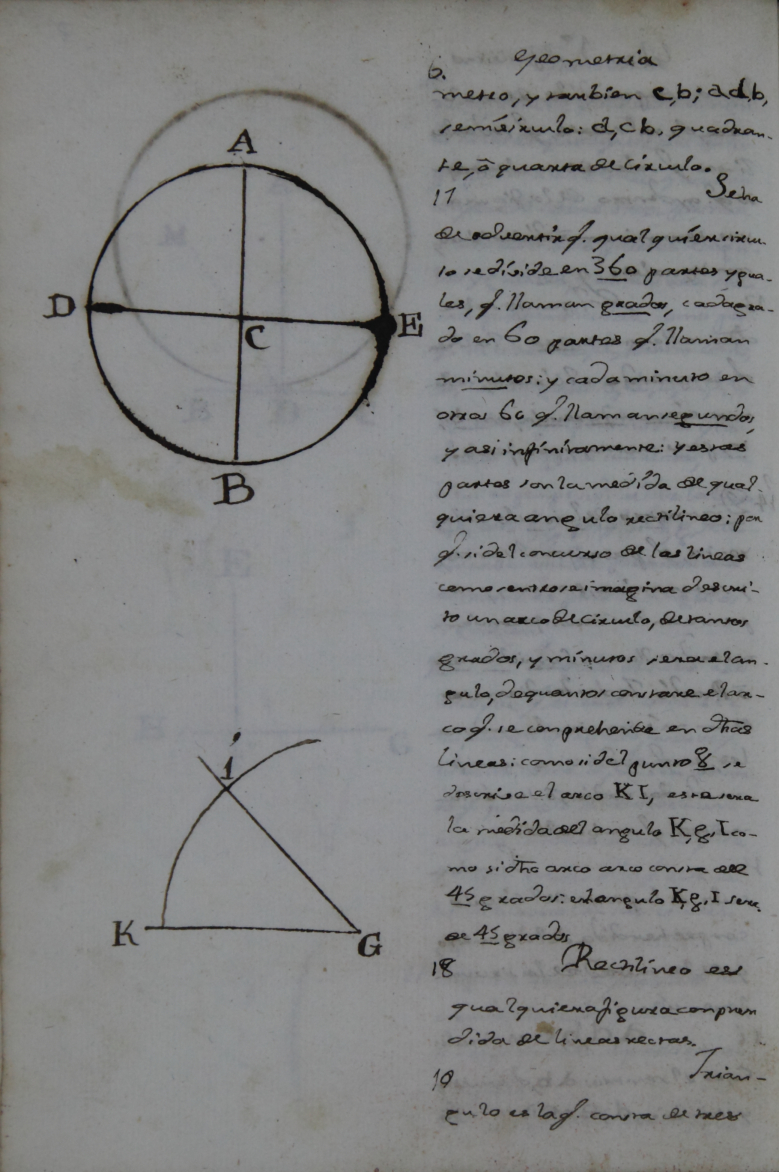 6. Geometria
metro, y tambien c,b; a,d,b,
semicirculo: d,c,b, quadran-
te, ò quarta de circulo.
17 Se ha
de advertir q. qualquier circu-
lo se divide en 360 partes ygua-
les, q. llaman grados, cada gra-
do en 60 partes q. llaman
minutos: y cada minuto en
otros 60 q. llaman segundos,
y asi infinitamente: y estas
partes son la medida de qual-
quiera angulo rectilineo; por
q. si del concurso de las lineas
como centro se imagina descri-
to un arco de circulo, de tantos
grados, y minutos sera el an-
gulo, de quantos constare el ar-
co q. se comprehende en dhas
lineas: como si del punto g se
descrive el arco KI, este sera
la medida del angulo K,g,I co-
mo si dho arco arco consta de
45 grados: el angulo K,g,I sera
de 45 grados
18 Rectilineo es
qualquiera figura conpren
dida de lineas rectas.
19 Trian-
gulo es la q. consta de tres
A
D
C
E
B
I
K
G